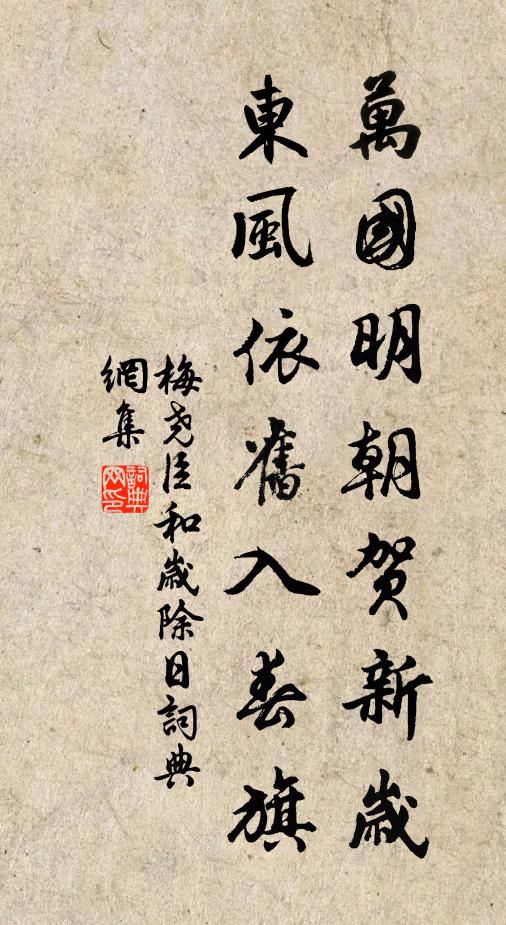 萬國明朝賀新歲
東風依舊入春旗
梅尧臣和歲除日詞典
網集
詞典
网印